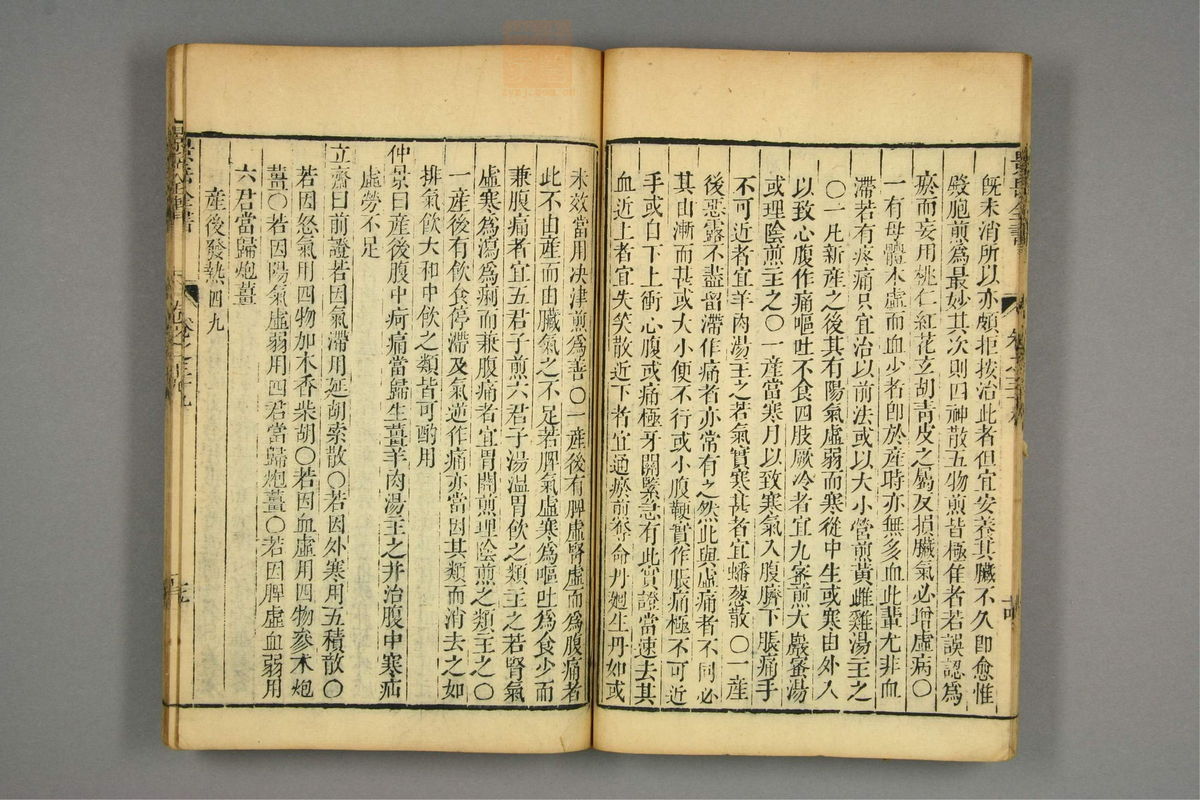 既未消所以亦頗拒按治此者但宜安養其臟不久即愈惟
殿胞煎爲最妙其次則四神散五物煎皆極隹者若誤認爲
瘀而妄用桃仁紅花玄胡青皮之屬反損臟氣必增虛病○
一有母體本虛而血少者即於産時亦無多血此輩尤非血
滯若有疼痛只宜治以前法或以大小營煎黃雌雞湯主之
○一凡新産之後其有陽氣虛弱而寒從中生或寒由外入
以致心腹作痛嘔吐不食四肢厥冷者宜九蜜煎大巖蜜湯
或理陰煎主之○一産當寒月以致寒氣入腹臍下脹痛手
不可近者宜羊肉湯主之若氣實寒甚者宜蟠葱散○一産
後惡露不盡留滯作痛者亦常有之然此與虛痛者不同必
其由漸而甚或大小便不行或小腹鞕實作脹痛極不可近
手或自下上衝心腹或痛極牙關緊急有此實證當速去其
血近上者宜失笑散近下者宜通瘀煎奪命丹廻生丹如或
未效當用决津煎爲善○一産後有脾虛腎虛而爲腹痛者
此不由産而由臟氣之不足若脾氣虛寒爲嘔吐爲食少而
兼腹痛者宜五君子煎六君子湯温胃飲之類主之若腎氣
虛寒爲瀉爲痢而兼腹痛者宜胃關煎理陰煎之類主之○
一産後有飲食停滯及氣逆作痛亦當因其類而消去之如
排氣飲大和中飲之類皆可酌用
仲景曰産後腹中㽲痛當歸生薑羊肉湯主之并治腹中寒疝
虛勞不足
立齋曰前證若因氣滯用延胡索散○若因外寒用五積散○
若因怒氣用四物加木香柴胡○若因血虛用四物參朮炮
薑○若因陽氣虛弱用四君當歸炮薑○若因脾虛血弱用
六君當歸炮薑
産後發熱四九